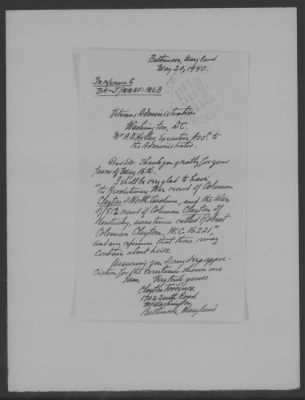 Baltimore, Maryland
May 29, 1940.
In reference to
BA-J/MMHF:MGB
Veterans Administration
Washington, D.C.
Mr A.D. Hiller, Executive Asst. to
the Administrator.
Dear Sir: Thank you greatly for your
favor of May 16th.
I shall be very glad to have,
The Revolutionary War record of Coleman
Clayton of North Carolina, and the War
of 1812 record of Coleman Clayton of
Kentucky, sometimes called Robert
Coleman Clayton, W.C. 16221,
and any information that these may
contain about heirs.
Assuring you of my deep appre-
ciation for the courtesies shown me
I am Very truly yours
Clayton Torrence
1702 South Road
Mt Washington
Baltimore, Maryland